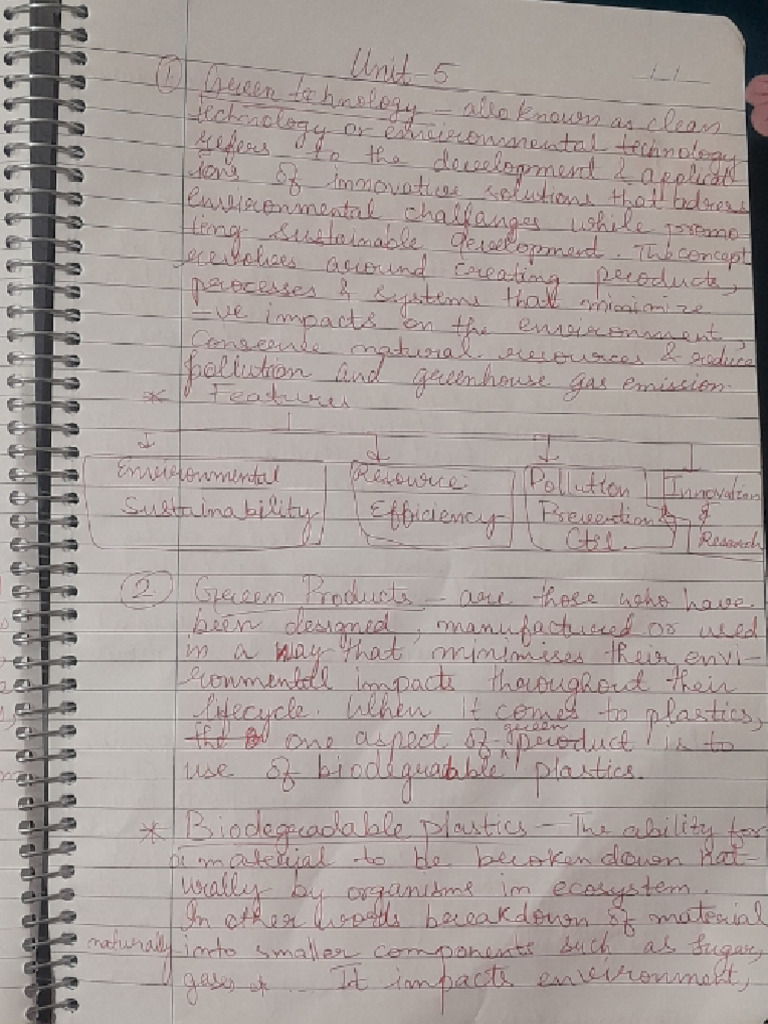 Unit 5
① Green technology - also known as clean
technology or environmental technology
refers to the development & applicat
ions of innovative solutions that adress
environmental challanges while promo
ting sustainable development. The concept
revolves around creating products,
processes & systems that minimize
-ve impacts on the environment,
Conserve natural resources & reduce
pollution and greenhouse gas emission.
* Features
Environmental Sustainability
Resource Efficiency
Pollution Prevention & Ctrl.
Innovation & Research
② Green Products - are those who have
been designed, manufactured or used
in a way that minimises their envi-
ronmental impacts throughout their
lifecycle. When it comes to plastics,
the one aspect of green product is to
use of biodegradable plastics.
* Biodegradable plastics - The ability for
a material to be broken down nat-
urally by organisms in ecosystem.
In other words breakdown of material
naturally into smaller components such as sugar,
gases It impacts environment,